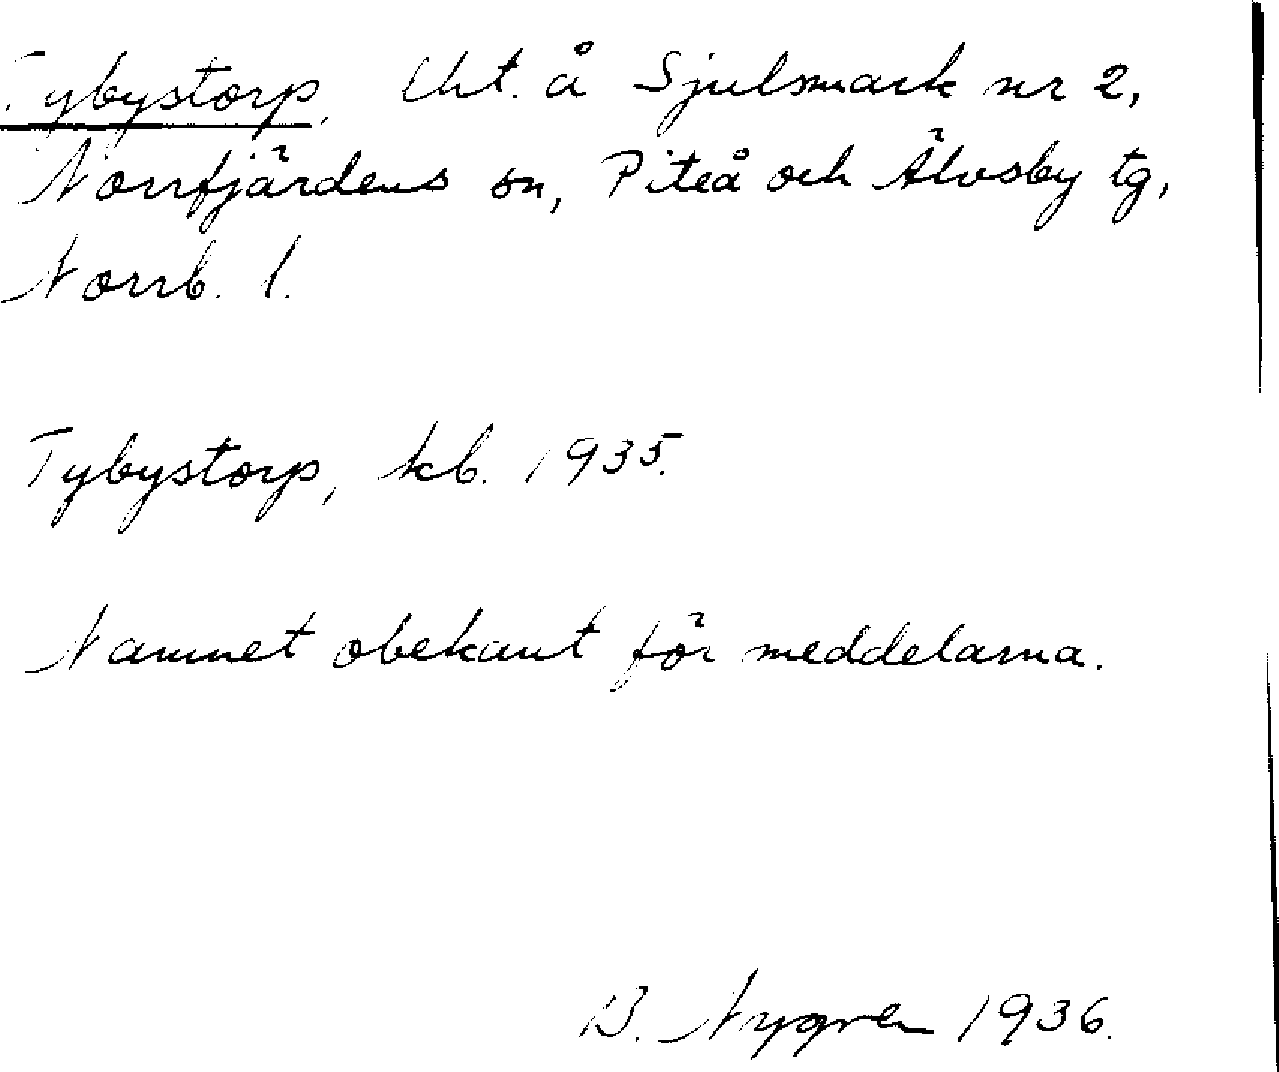 Tybystorp, Uht. å Sjulsmark nr 2,
Norrfjärdens sn, Piteå och Älvsby tg,
Norrb. l.
Tybystorp, kb. 1935.
Namnet obekant för meddelarna.
B. Nygren 1936.